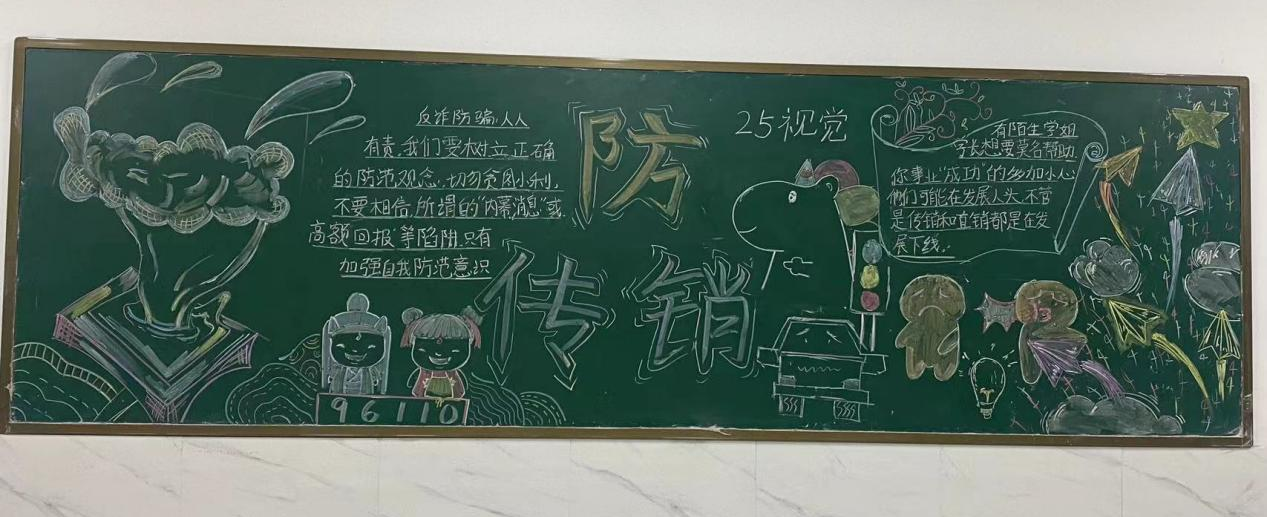 反诈防骗,人人
有责,我们要树立正确
的防范观念,切勿贪图小利,
不要相信,所谓的"内幕消息"或
高额回报"等陷阱,只有
加强自我防范意识
防
传销
25视觉
有陌生学姐
学长想要莫名帮助
您事业"成功"的多加小心
他们可能在发展人头,不管
是传销和直销都是在发
展下线.
96110